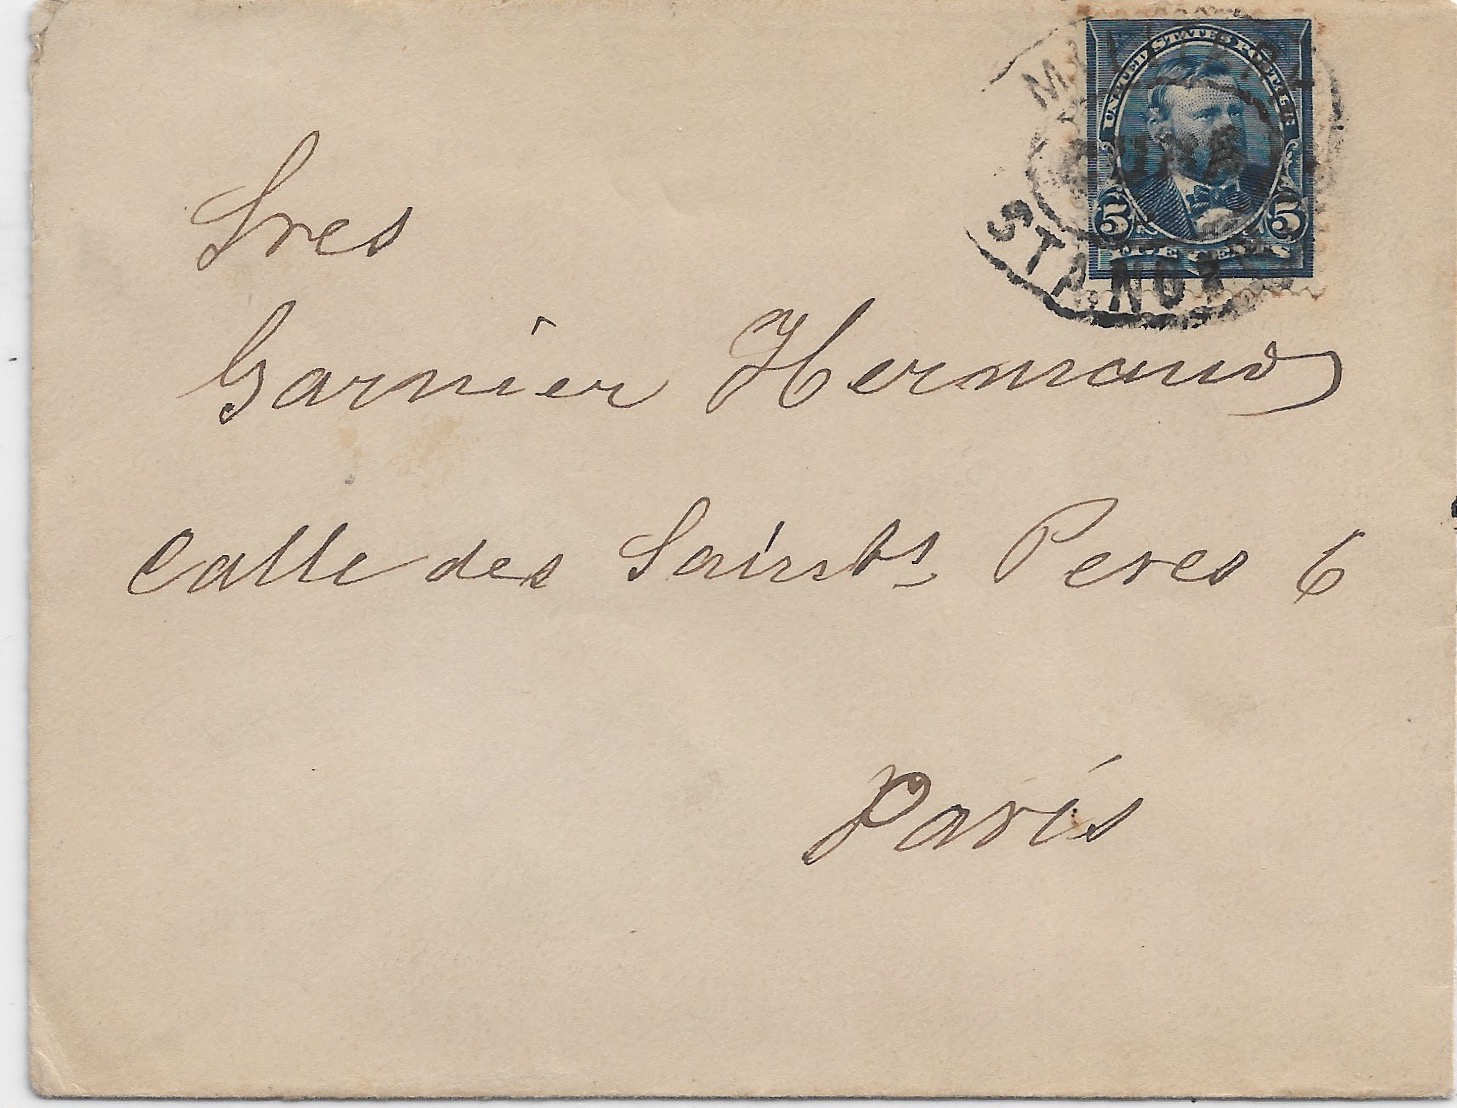 UNITED STATES POSTAGE
5 5
STA. NO
Sres
Garnier Hermanos
Calle des Saints Peres 6
París